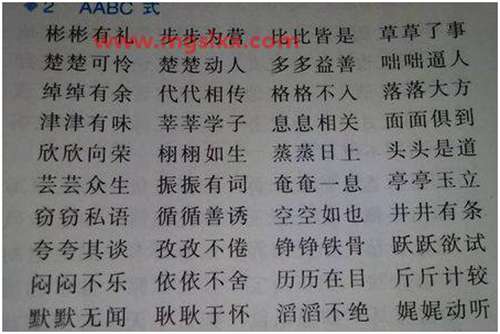 2 AABC 式
彬彬有礼 步步为营 比比皆是 草草了事
www.mgslxx.com
楚楚可怜 楚楚动人 多多益善 咄咄逼人
绰绰有余 代代相传 格格不入 落落大方
津津有味 莘莘学子 息息相关 面面俱到
欣欣向荣 栩栩如生 蒸蒸日上 头头是道
芸芸众生 振振有词 奄奄一息 亭亭玉立
窃窃私语 循循善诱 空空如也 井井有条
夸夸其谈 孜孜不倦 铮铮铁骨 跃跃欲试
闷闷不乐 依依不舍 历历在目 斤斤计较
默默无闻 耿耿于怀 滔滔不绝 娓娓动听